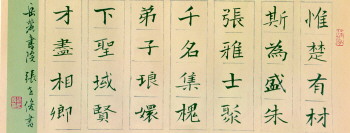 惟楚有材
斯為盛朱
張雅士聚
千名集槐
弟子琅嬛
下聖域賢
才盡相卿
岳麓書院 張俊書